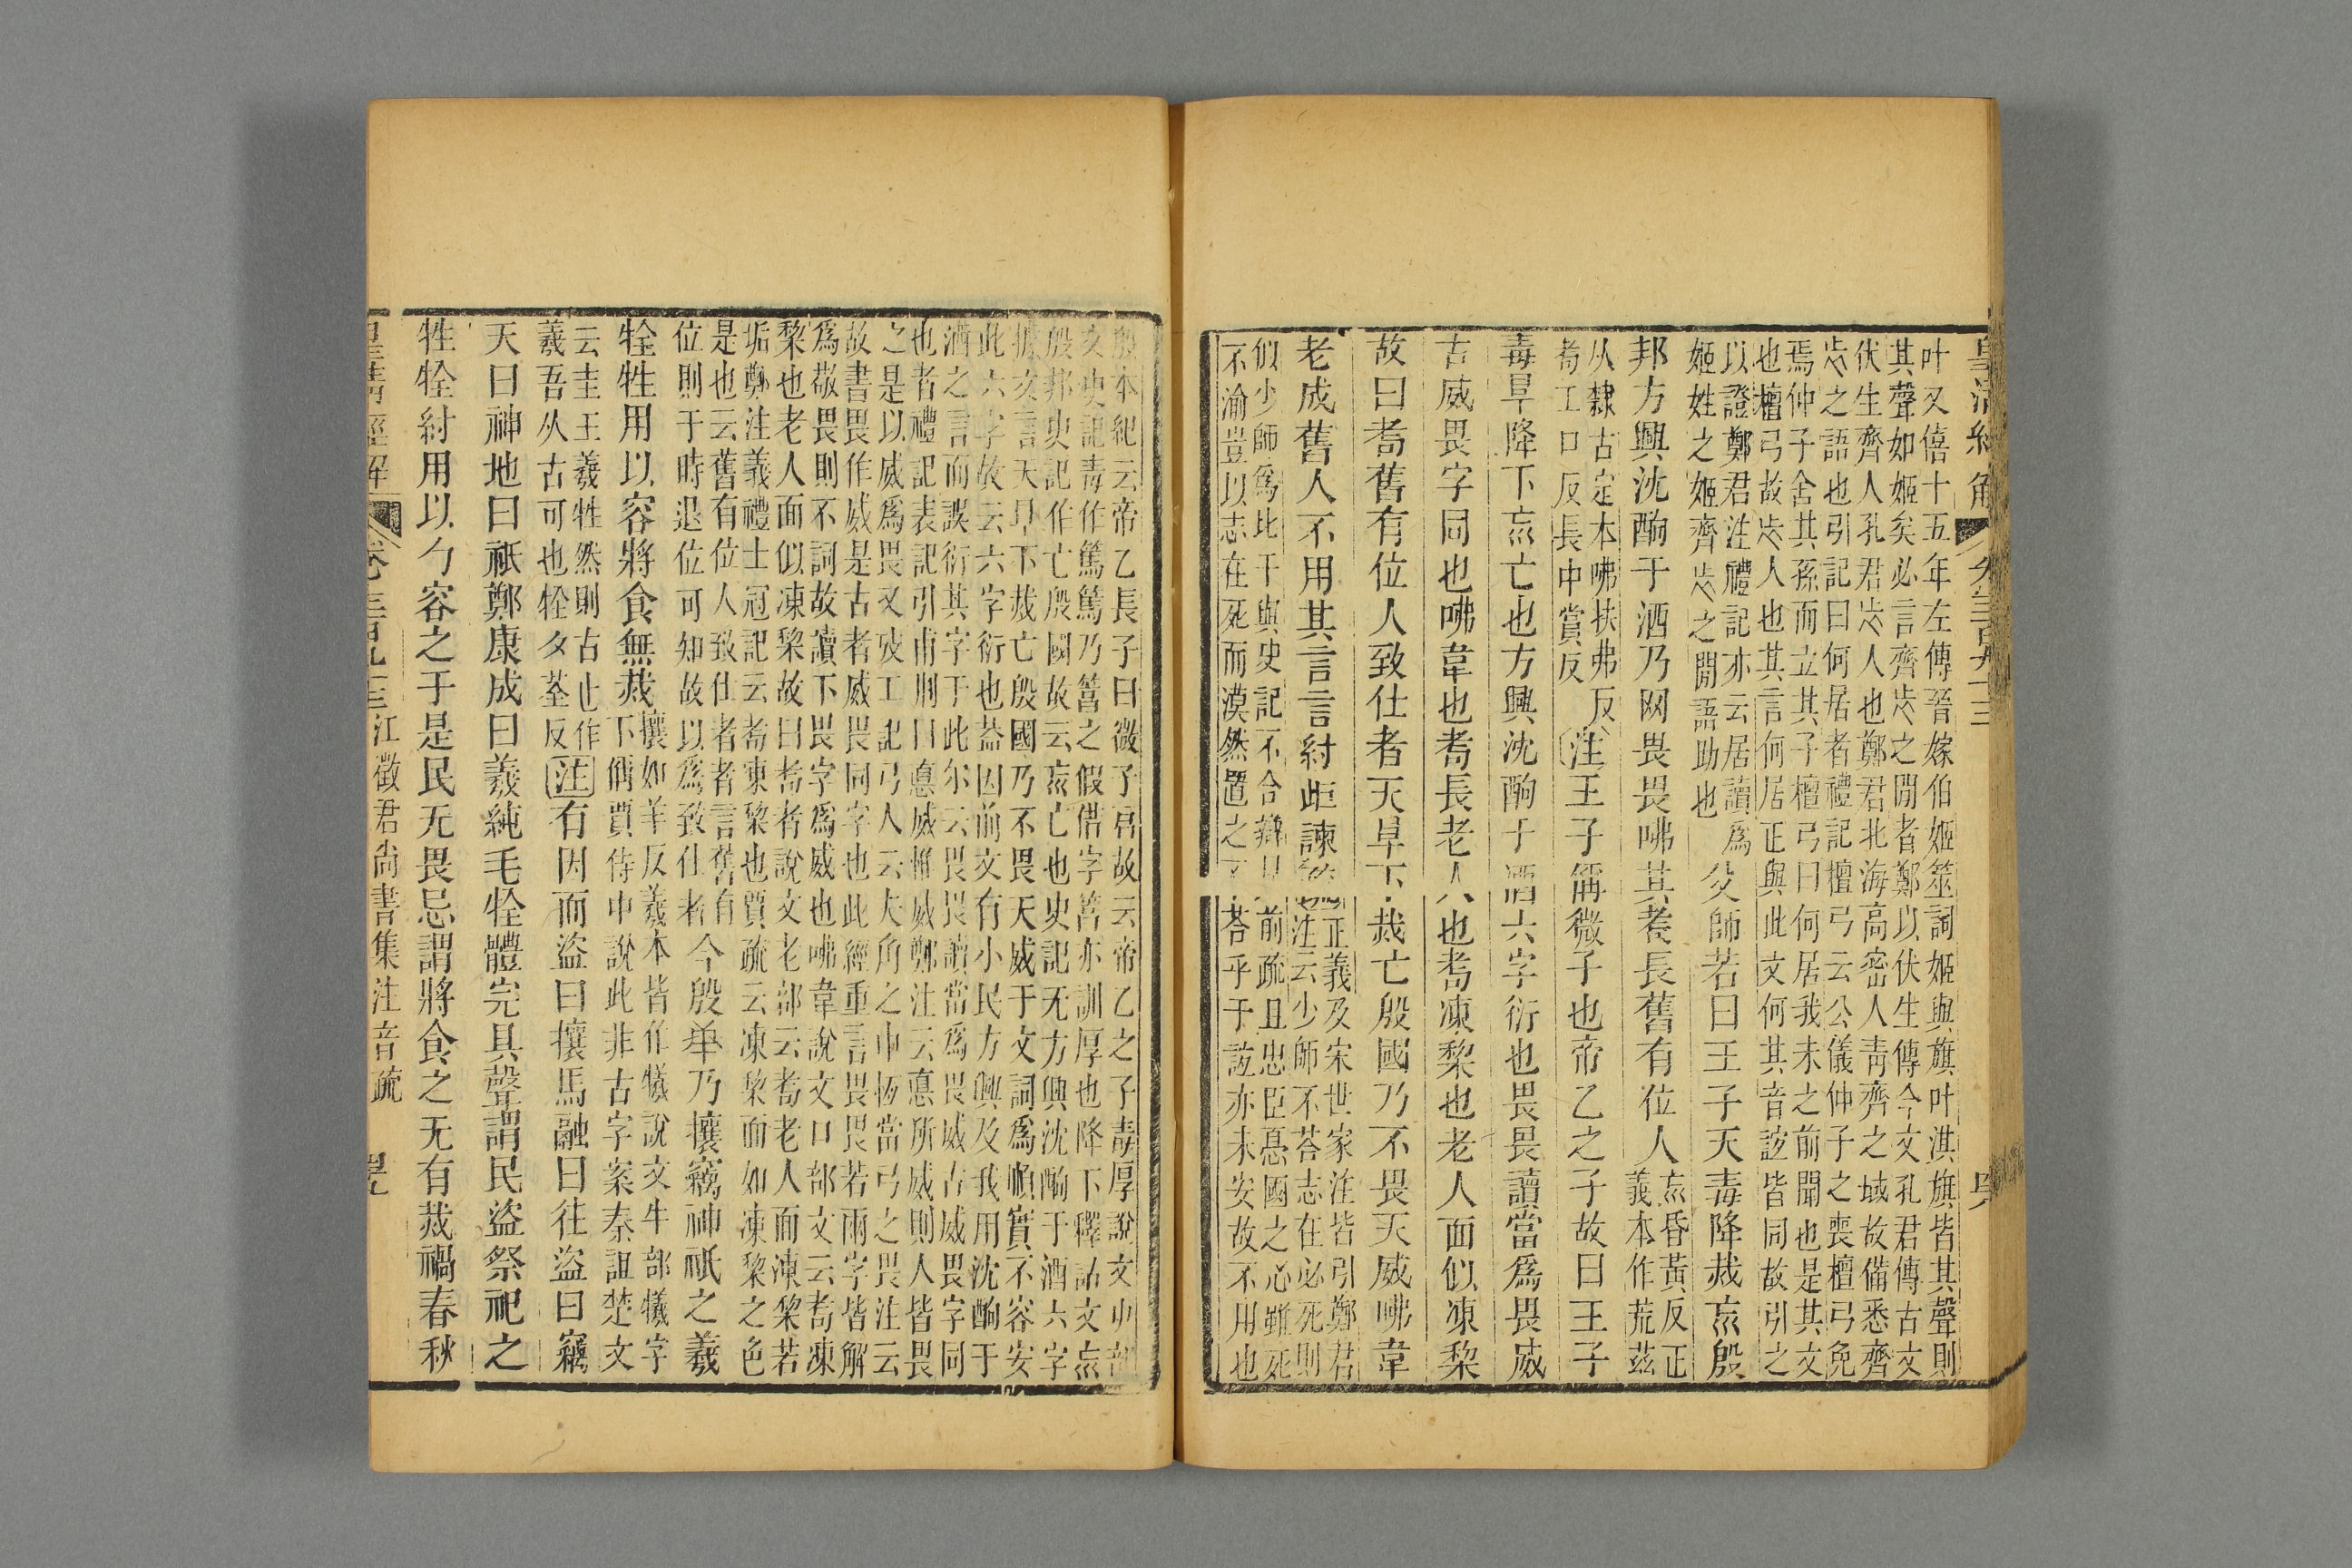 叶又僖十五年左傳晉嫁伯姬筮詞姬與旗叶淇旗皆其聲則
其聲如姬矣必言齊𠈌之閒者鄭以伏生傳今文孔君傳古文
伏生齊人孔君𠈌人也鄭君北海高密人靑齊之域故備悉齊
之語也引記曰何居者禮記檀弓云公儀仲子之喪檀弓免
焉仲子舍其孫而立其子檀弓曰何居我未之前聞也是其文
也檀弓故人也其言何居正與此文何其音誼皆同故引之
以證鄭君注禮記亦云居讀爲
姬姓之姬齊之閒語助也
父師若曰王子天毒降烖巟殷
邦方興沈酗于酒乃网畏畏咈其耇長舊有位人
巟昏黃反正
義本作荒茲
从隸古定本咈扶弗反
耇工口反長中賞反
注王子偁微子也帝乙之子故曰王子
毒旱降下巟亡也方興沈酗于酒六字衍也畏畏讀當爲畏威
古威畏字同也咈韋也耇長老人也耇凍棃也老人面似凍棃
故曰耇舊有位人致仕者天旱下烖亡殷國乃不畏天威咈韋
老成舊人不用其言言紂歫諫
正義及宋世家注皆引鄭君
注云少師不荅志在必死則
似少師爲比干與史記不合
前疏且忠臣惪國之心雖死
不渝豈以志在死而漠然置之
荅乎于誼亦未安故不用也
殷本紀云帝乙長子曰微子啟故云帝乙之子毒厚說文屮部
文史記毒作篤篤乃䈞之假借字䈞亦訓厚也降下釋詁文巟
殷邦史記作亡殷國故云巟亡也史記无方興沈酗于酒六字
據文言天旱下烖亡殷國乃不畏天威于文詞爲順實不容安
此六字故云六字衍也葢因前文有小民方興及我用沈酗于
酒之言而誤衍其字于此尔云畏畏讀當爲畏威古威畏字同
也者禮記表記引甫㓝曰惪威惟威鄭注云惪所威則人皆畏
之是以威爲畏又攷工記弓人云夫角之中恆當弓之畏注云
故書畏作威是古者威畏同字也此經重言畏畏若兩字皆解
爲敬畏則不詞故讀下畏字爲威也咈韋說文口部文云耇凍
棃也老人面似凍棃故曰耇者說文老部云耇老人面凍棃若
垢鄭注義禮士冠記云耇凍棃也賈疏云凍棃面如凍棃之色
是也云舊有位人致仕者者言舊有
位則于時退位可知故以爲致仕者
今殷𢆉乃攘竊神祇之羲
牷牲用以容將食無烖
攘如羊反羲本皆作犧說文牛部犧字
下偁賈侍中說此非古字案秦詛楚文
云圭王羲牲然則古止作
羲吾从古可也牷夕荃反
注有因而盜曰攘馬融曰往盜曰竊
天曰神地曰祇鄭康成曰羲純毛牷體完具聲謂民盜祭祀之
牲牷紂用以勹容之于是民无畏忌謂將食之无有烖禍春秋
江徵君尚書集注音疏